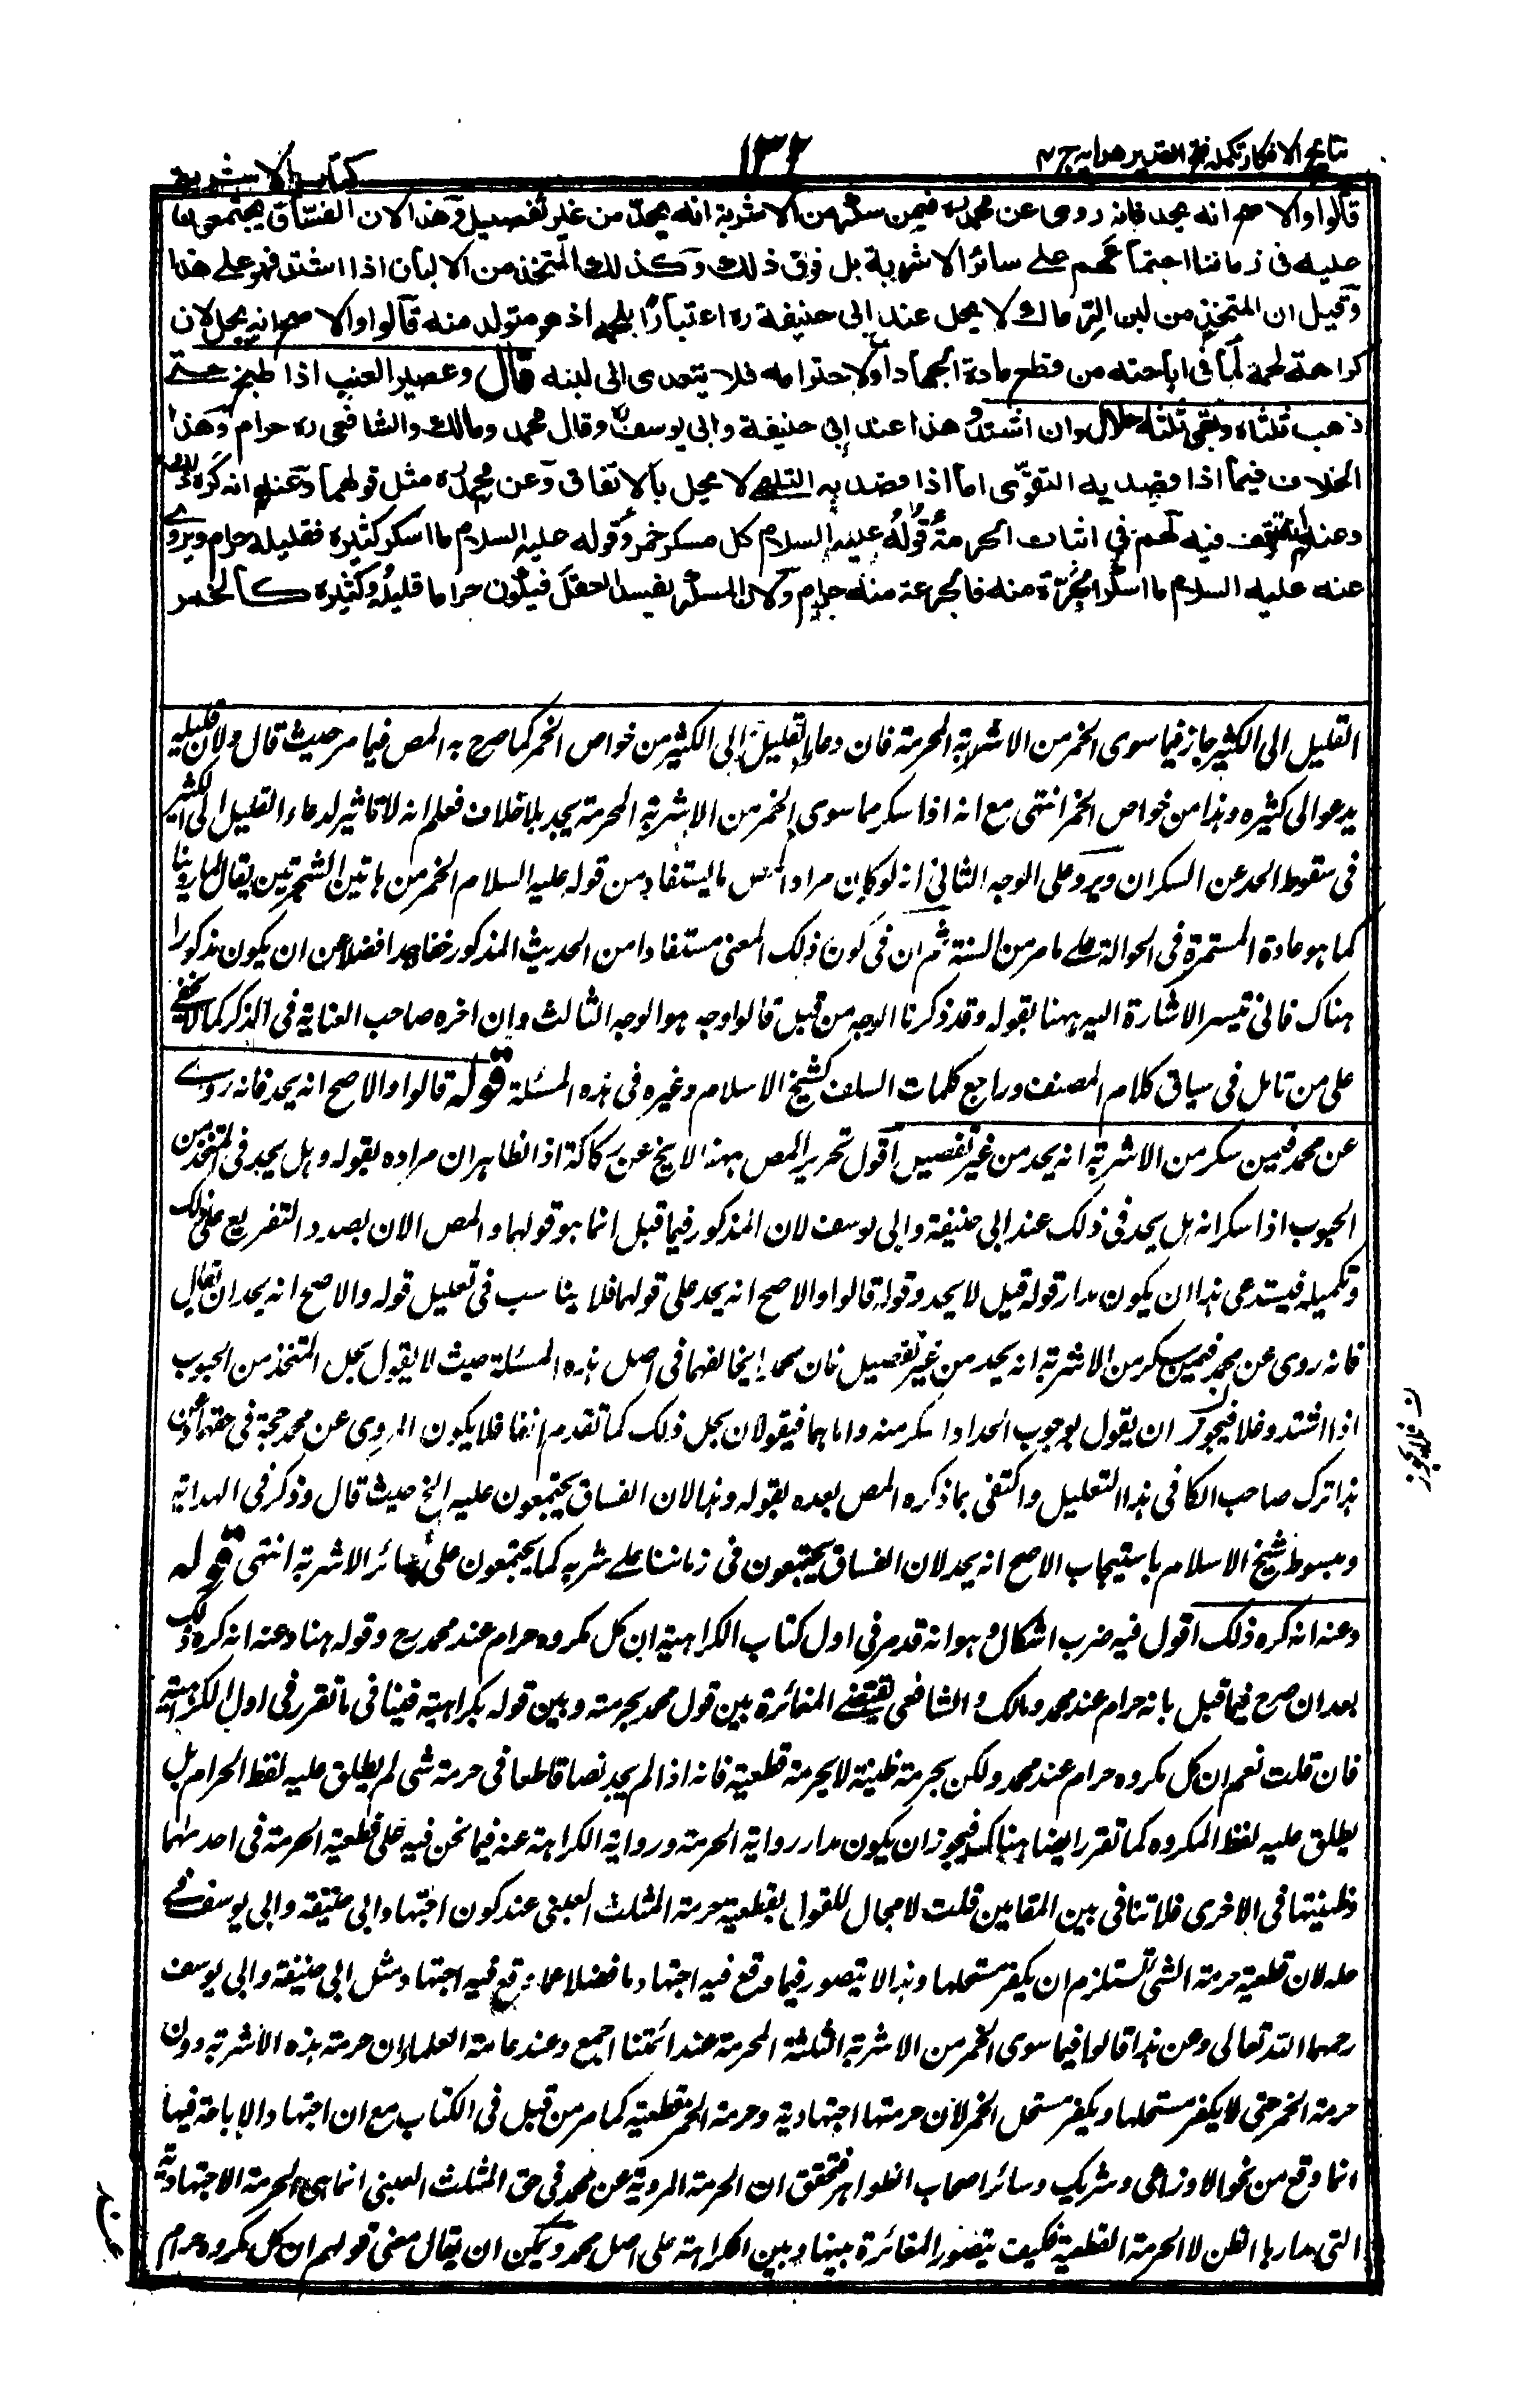 نتائج الافكار تكملة فتح القدير هدايه ج ٤
١٣٢
كتاب الاشربة
قالوا والاصح انه يحد فانه روى عن محمد ره فيمن سكر من الاشربة انه يحد من غير تفصيل وهذا لان الفساق يجتمعون
عليه فى زماننا اجتماعهم على سائر الاشربة بل فوق ذلك وكذلك المتخذ من الالبان اذا اشتد فهو على هذا
وقيل ان المتخذ من لبن الرماك لا يحل عند ابى حنيفة ره اعتبارا بلحمه اذ هو متولد منه قالوا والاصح انه يحل لان
كراهة لحمه لما فى اباحته من قطع مادة الجهاد او لاحترامه فلا يتعدى الى لبنه قال وعصير العنب اذا طبخ حتى
ذهب ثلثاه وبقى ثلثه حلال وان اشتد وهذا عند ابى حنيفة وابى يوسف وقال محمد ومالك والشافعى ره حرام وهذا
الخلاف فيما اذا قصد به التقوى اما اذا قصد به التلهى لا يحل بالاتفاق وعن محمد ره مثل قولهما وعنه انه كره ذلك
وعنه انه توقف فيه لهم فى اثبات الحرمة قوله عليه السلام كل مسكر خمر وقوله عليه السلام ما اسكر كثيره فقليله حرام ويروى
عنه عليه السلام ما اسكر الجرة منه فالجرعة منه حرام ولان المسكر يفسد العقل فيكون حراما قليله وكثيره كالخمر
القليل الى الكثير جاز فيما سوى الخمر من الاشربة المحرمة فان دعاء القليل الى الكثير من خواص الخمر كما صرح به المص فيما مر حيث قال ولان قليله
يدعو الى كثيره وهذا من خواص الخمر انتهى مع انه اذا سكر مما سوى الخمر من الاشربة المحرمة يحد بلا خلاف فعلم انه لا تاثير لدعاء القليل الى الكثير
فى سقوط الحد عن السكران ويرد على الوجه الثانى انه لو كان مراد المص ما يستفاد من قوله عليه السلام الخمر من هاتين الشجرتين يقال لما روينا
كما هو عادة المستمرة فى الحوالة على ما مر من السنة ثم ان فى كون ذلك المعنى مستفادا من الحديث المذكور خفاء جدا فضلا عن ان يكون مذكورا
هناك فانى تيسر الاشارة اليه ههنا بقوله وقد ذكرنا الوجه من قبل قالوا وجه هو الوجه الثالث وان اخره صاحب العناية فى الذكر كما لا يخفى
على من تامل فى سياق كلام المصنف وراجع كلمات السلف كشيخ الاسلام وغيره فى هذه المسئلة قوله قالوا والاصح انه يحد فانه روى
عن محمد فيمن سكر من الاشربة انه يحد من غير تفصيل اقول تحرير المص ههنا لا يخ عن ركاكة اذ الظاهر ان مراده بقوله وهل يحد فى المتخذ من
الحبوب اذا سكر انه هل يحد فى ذلك عند ابى حنيفة وابى يوسف لان المذكور فيما قبل انما هو قولهما والمص الان بصدد التفريع على ذلك
وتكميله فيستدعى هذا ان يكون مدار قوله قيل لا يحد وقوله قالوا والاصح انه يحد على قولهما فلا يناسب فى تعليل قوله والاصح انه يحد ان يقال
فانه روى عن محمد فيمن سكر من الاشربة انه يحد من غير تفصيل فان محمدا يخالفهما فى اصل هذه المسئلة حيث لا يقول بحل المتخذ من الحبوب
اذا اشتد وغلا فيجوز ان يقول بوجوب الحد اذا سكر منه واما هما فيقولان بحل ذلك كما تقدم انفا فلا يكون المروى عن محمد حجة فى حقهما وعن
هذا ترك صاحب الكافى هذا التعليل واكتفى بما ذكره المص بعده بقوله وهذا لان الفساق يجتمعون عليه الخ حيث قال وذكر فى الهداية
ومبسوط شيخ الاسلام باستيجاب الاصح انه يحد لان الفساق يجتمعون فى زماننا على شربه كما يجتمعون على سائر الاشربة انتهى قوله
وعنه انه كره ذلك اقول فيه ضرب اشكال وهو انه قد مر فى اول كتاب الكراهية ان كل مكروه حرام عند محمد رح وقوله هنا وعنه انه كره ذلك
بعد ان صرح فيما قبل بانه حرام عند محمد ومالك والشافعى يقتضى المغائرة بين قول محمد بحرمته وبين قوله بكراهيته فينافى ما تقرر فى اول الكراهية
فان قلت نعم ان كل مكروه حرام عند محمد ولكن بحرمة ظنية لا بحرمة قطعية فانه اذا لم يجد نصا قاطعا فى حرمة شى لم يطلق عليه لفظ الحرام بل
يطلق عليه لفظ المكروه كما تقرر ايضا هناك فيجوز ان يكون مدار رواية الحرمة ورواية الكراهة عنه فيما نحن فيه على قطعية الحرمة فى احدهما
وظنيتها فى الاخرى فلا تنافى بين المقامين قلت لا مجال للقول بقطعية حرمة المثلث العنبى عند كون اجتهاد ابى حنيفة وابى يوسف فى
حله لان قطعية حرمة الشى تستلزم ان يكفر مستحلها وهذا لا يتصور فيما وقع فيه اجتهاد ما فضلا عما وقع فيه اجتهاد مثل ابى حنيفة وابى يوسف
رحمهما الله تعالى وعن هذا قالوا فيما سوى الخمر من الاشربة الثلثة المحرمة عند ائمتنا اجمع وعند عامة العلماء ان حرمة هذه الاشربة دون
حرمة الخمر حتى لا يكفر مستحلها ويكفر مستحل الخمر لان حرمتها اجتهادية وحرمة الخمر قطعية كما مر من قبل فى الكتاب مع ان اجتهاد الاباحة فيها
انما وقع من نحو الاوزاعى وشريك وسائر اصحاب الظواهر فتحقق ان الحرمة المروية عن محمد فى حق المثلث العنبى انما هى الحرمة الاجتهادية
التى مدارها الظن لا الحرمة القطعية فكيف يتصور المغائرة بينها وبين الكراهة على اصل محمد ويمكن ان يقال معنى قولهم ان كل مكروه حرام